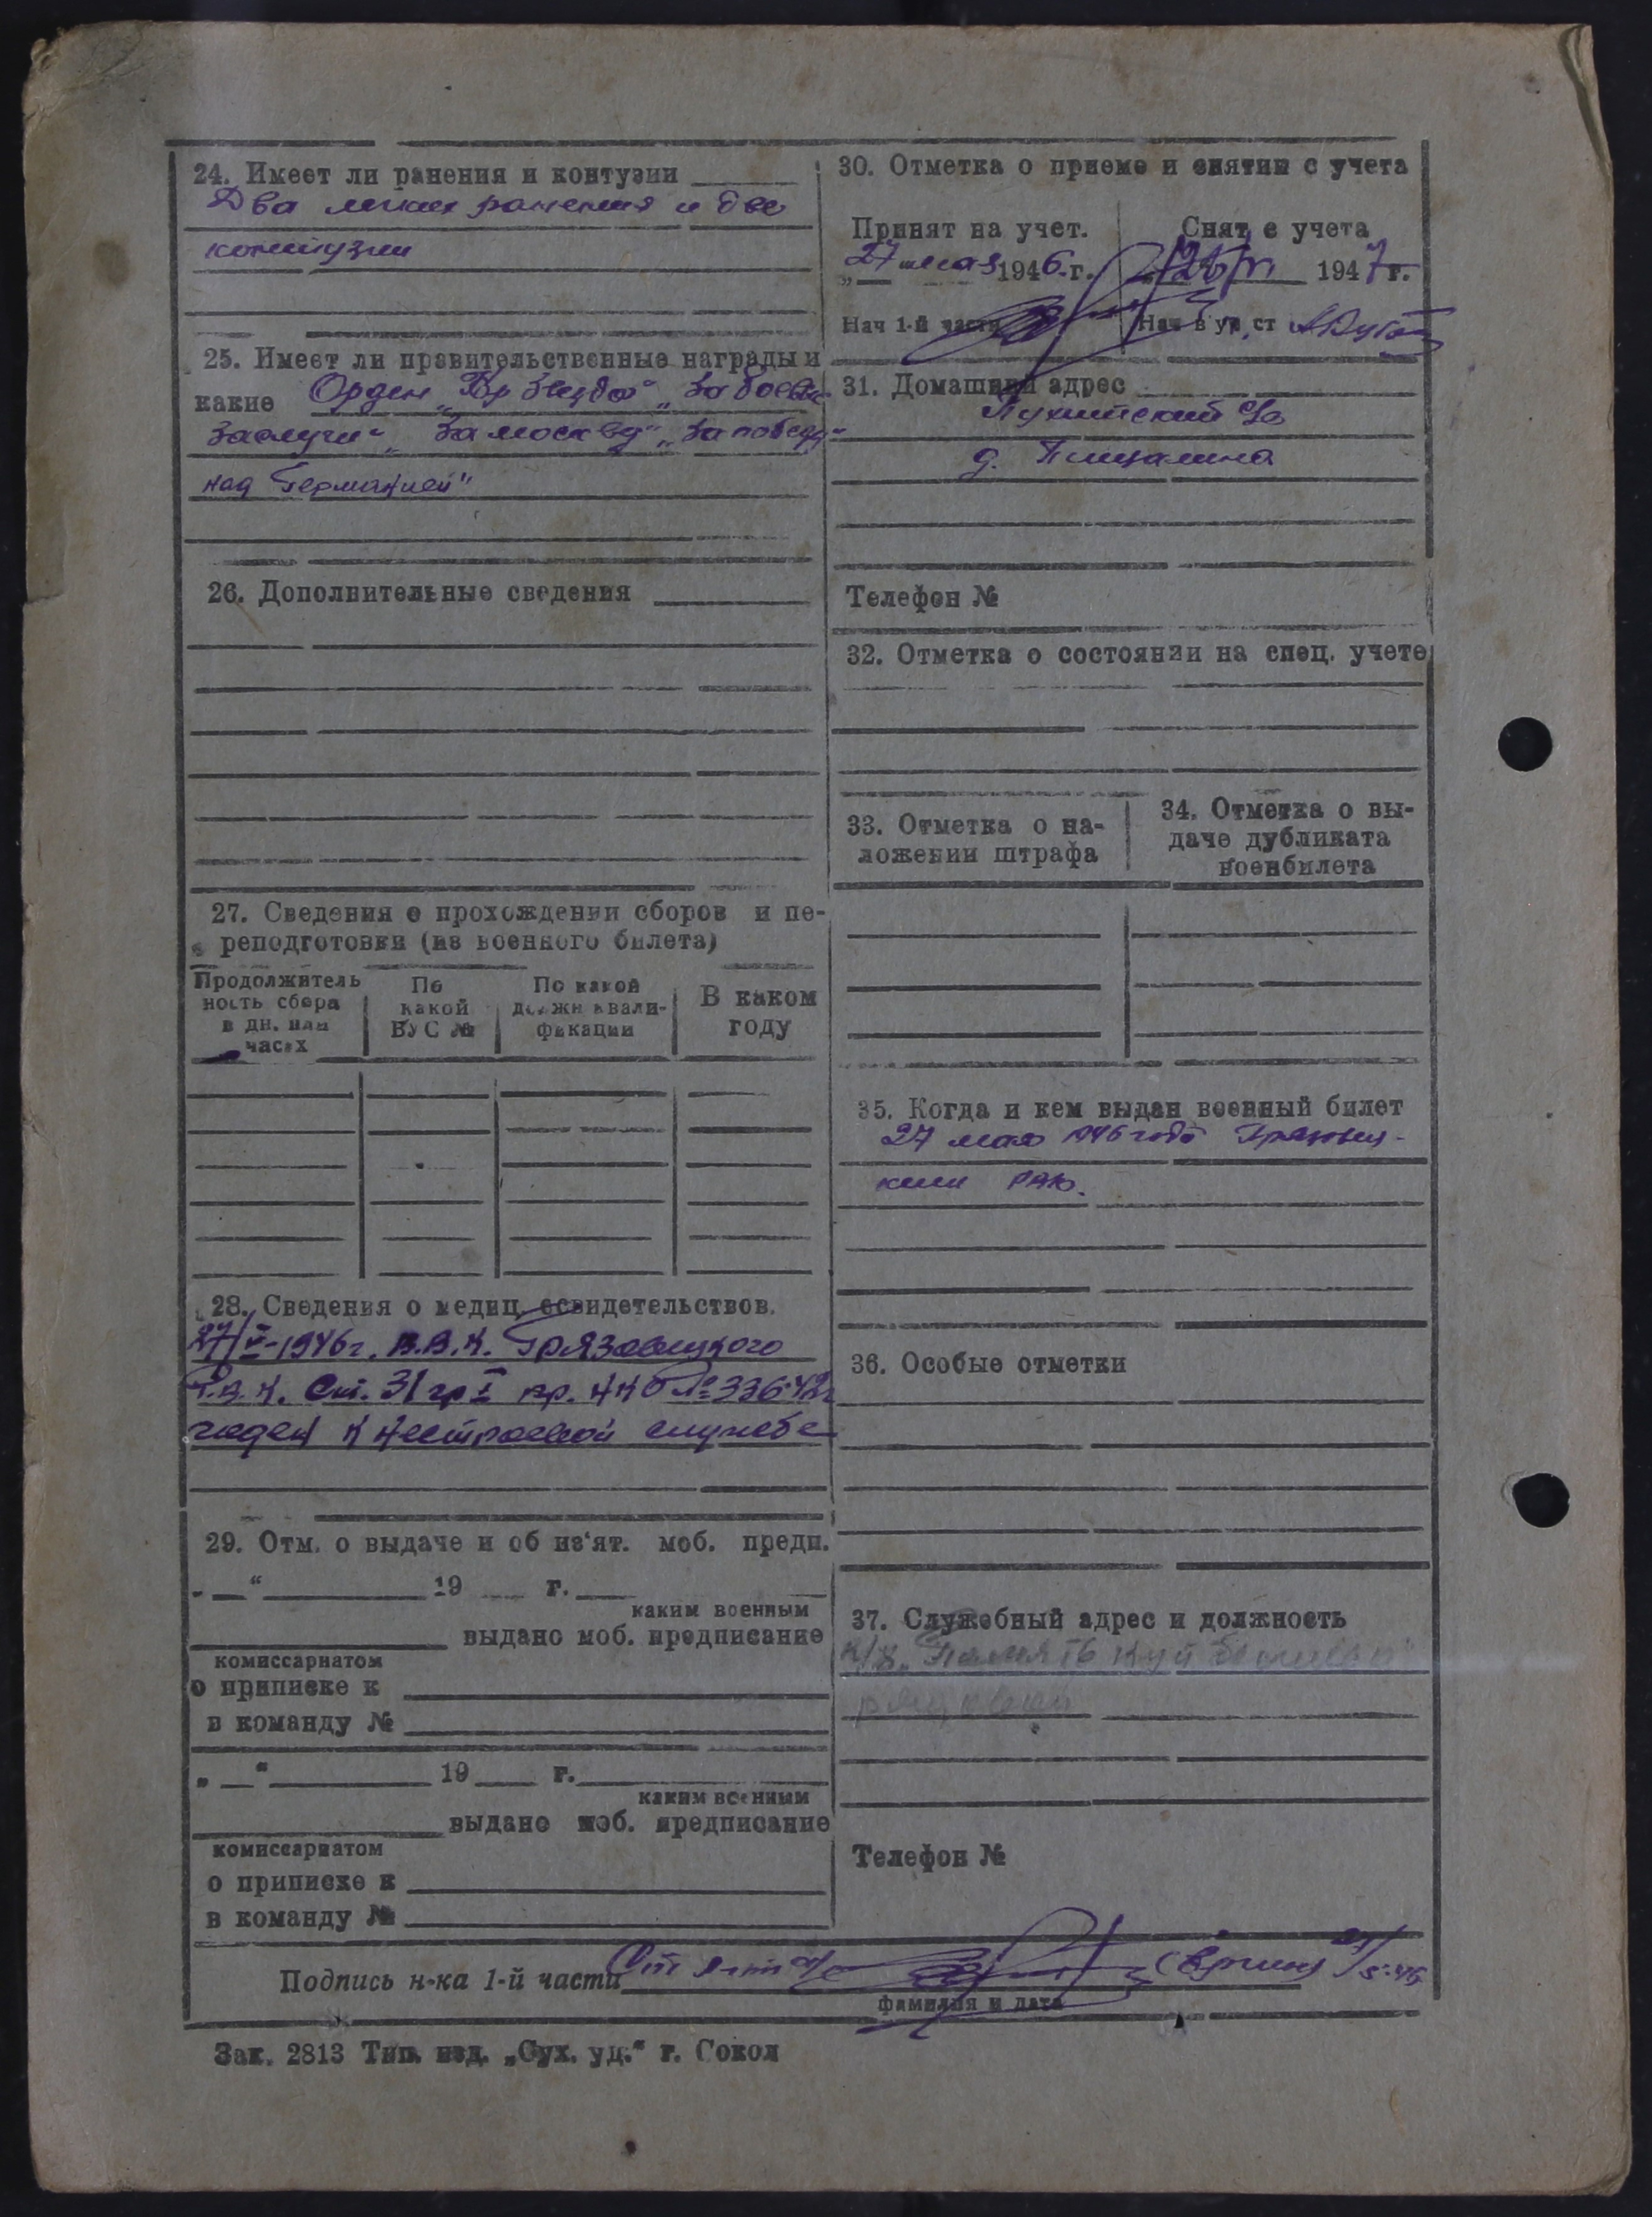 24. Имеет ли ранения и контузии
Два легких ранения и две
контузии
25. Имеет ли правительственные награды и
какие Орден „Кр Звезда" „За боевые
заслуги" „За Москву" „За победу
над Германией"
26. Дополнительные сведения
27. Сведения о прохождении сборов и пе-
реподготовки (из военного билета)
Продолжитель
ность сбора
в дн. или
часах
По
какой
ВУС №
По какой
должн квали-
фикации
В каком
году
28. Сведения о медиц. освидетельствов.
27/V-1946г. В.В.К. Грязовецкого
Р.В.К. Ст. 31 гр I пр. НКО № 336-42г
годен к нестроевой службе
29. Отм. о выдаче и об из'ят. моб. предп.
„ “ 19 г.
каким военным
выдано моб. предписание
комиссариатом
о приписке к
в команду №
„ “ 19 г.
каким военным
выдано моб. предписание
комиссариатом
о приписке к
в команду №
30. Отметка о приеме и снятии с учета
Принят на учет.
„27" мая 1946 г.
Нач 1-й части
Снят с учета
1947 г.
Нач в уч. ст
31. Домашний адрес
с/с
д. Пищалина
Телефон №
32. Отметка о состоянии на спец. учете
33. Отметка о на-
ложении штрафа
34. Отметка о вы-
даче дубликата
военбилета
35. Когда и кем выдан военный билет
27 мая 1946 года Грязовец-
ким РВК.
36. Особые отметки
37. Служебный адрес и должность
к/з „Память Куйбышева"
рядовой
Телефон №
Подпись н-ка 1-й части Ст л-т а/с
фамилия и дата
Зак. 2813 Тип. изд. „Сух. уд.“ г. Сокол